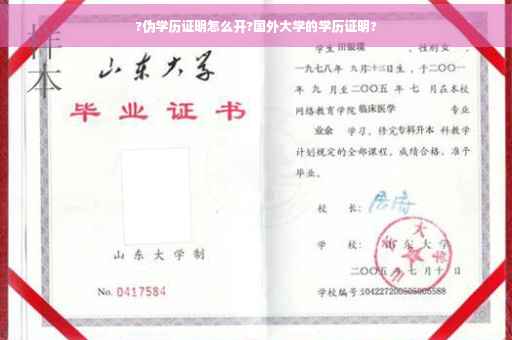 ?伪学历证明怎么开?国外大学的学历证明?
样本
山东大学
毕业证书
山东大学制
No. 0417584
学生 田银瑞 ，性别女，
一九七八年 九月十三日生，于二〇〇一
年 九 月至二〇〇五 年 七 月在本校
网络教育学院 临床医学 专业
业余 学习，修完专科升本 科教学
计划规定的全部课程，成绩合格，准予
毕业。
校 长：
学 校：山东大学
二〇〇五 年 七 月 十 日
学校编号：104227200505005588